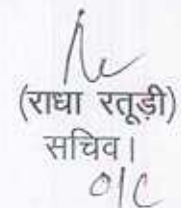 (राधा रतूड़ी)
सचिव।
O/C